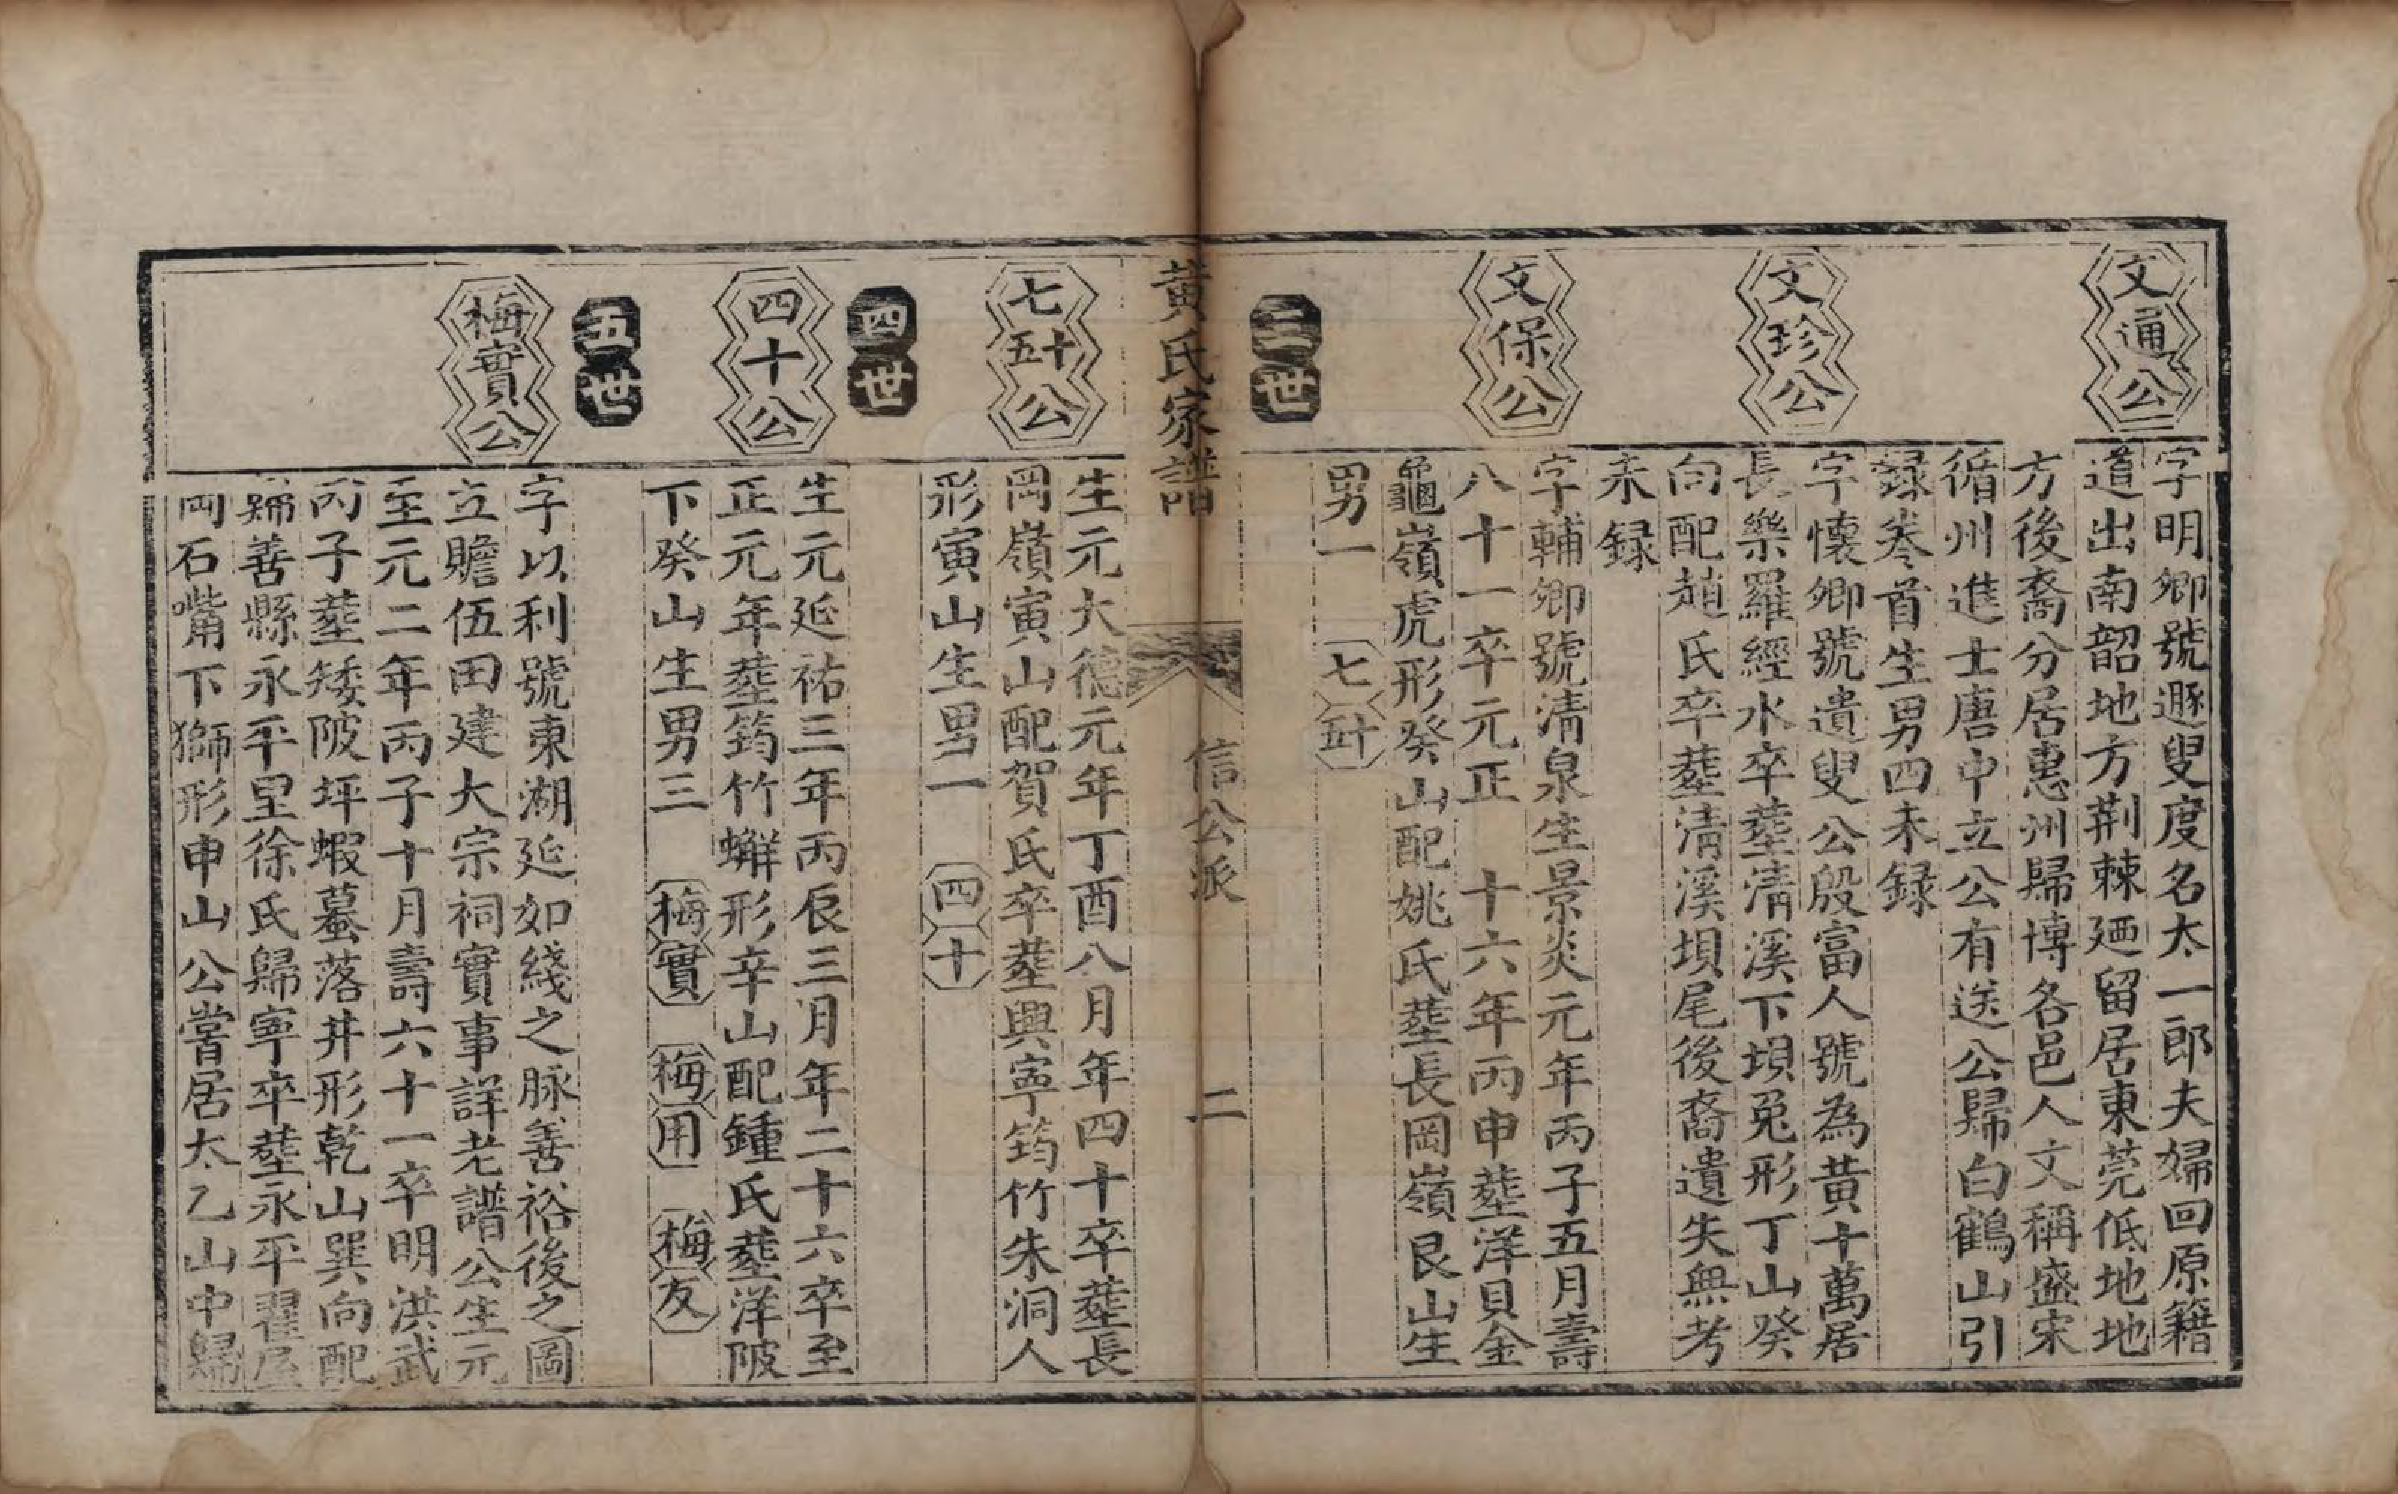 文通公
字明卿號遯叟度名太一郎夫婦回原籍
道出南韶地方荆棘廼留居東莞低地地
方後裔分居惠州歸博各邑人文稱盛宋
循州進士唐中立公有送公歸白鶴山引
録卷首生男四未録
文珍公
字懷卿號遺叟公殷富人號為黄十萬居
長樂羅經水卒塟清溪下埧兔形丁山癸
向配趙氏卒塟清溪埧尾後裔遺失無考
未録
文保公
字輔卿號清泉生景炎元年丙子五月壽
八十一卒元正 十六年丙申塟洋貝金
龜嶺虎形癸山配姚氏塟長岡嶺艮山生
男一 七五十
三世
黄氏家譜 信公派 二
七五十公
生元大德元年丁酉八月年四十卒塟長
岡嶺寅山配賀氏卒塟興寧筠竹朱洞人
形寅山生男一 四十
四世
四十公
生元延祐三年丙辰三月年二十六卒至
正元年塟筠竹蠏形辛山配鍾氏塟洋陂
下癸山生男三 梅實 梅用 梅友
五世
梅實公
字以利號東湖延如綫之脉善裕後之圖
立贍伍田建大宗祠實事詳老譜公生元
至元二年丙子十月壽六十一卒明洪武
丙子塟矮陂坪蝦蟇落井形乾山巽向配
歸善縣永平里徐氏歸寧卒塟永平翟屋
岡石嘴下獅形申山公嘗居太乙山中歸